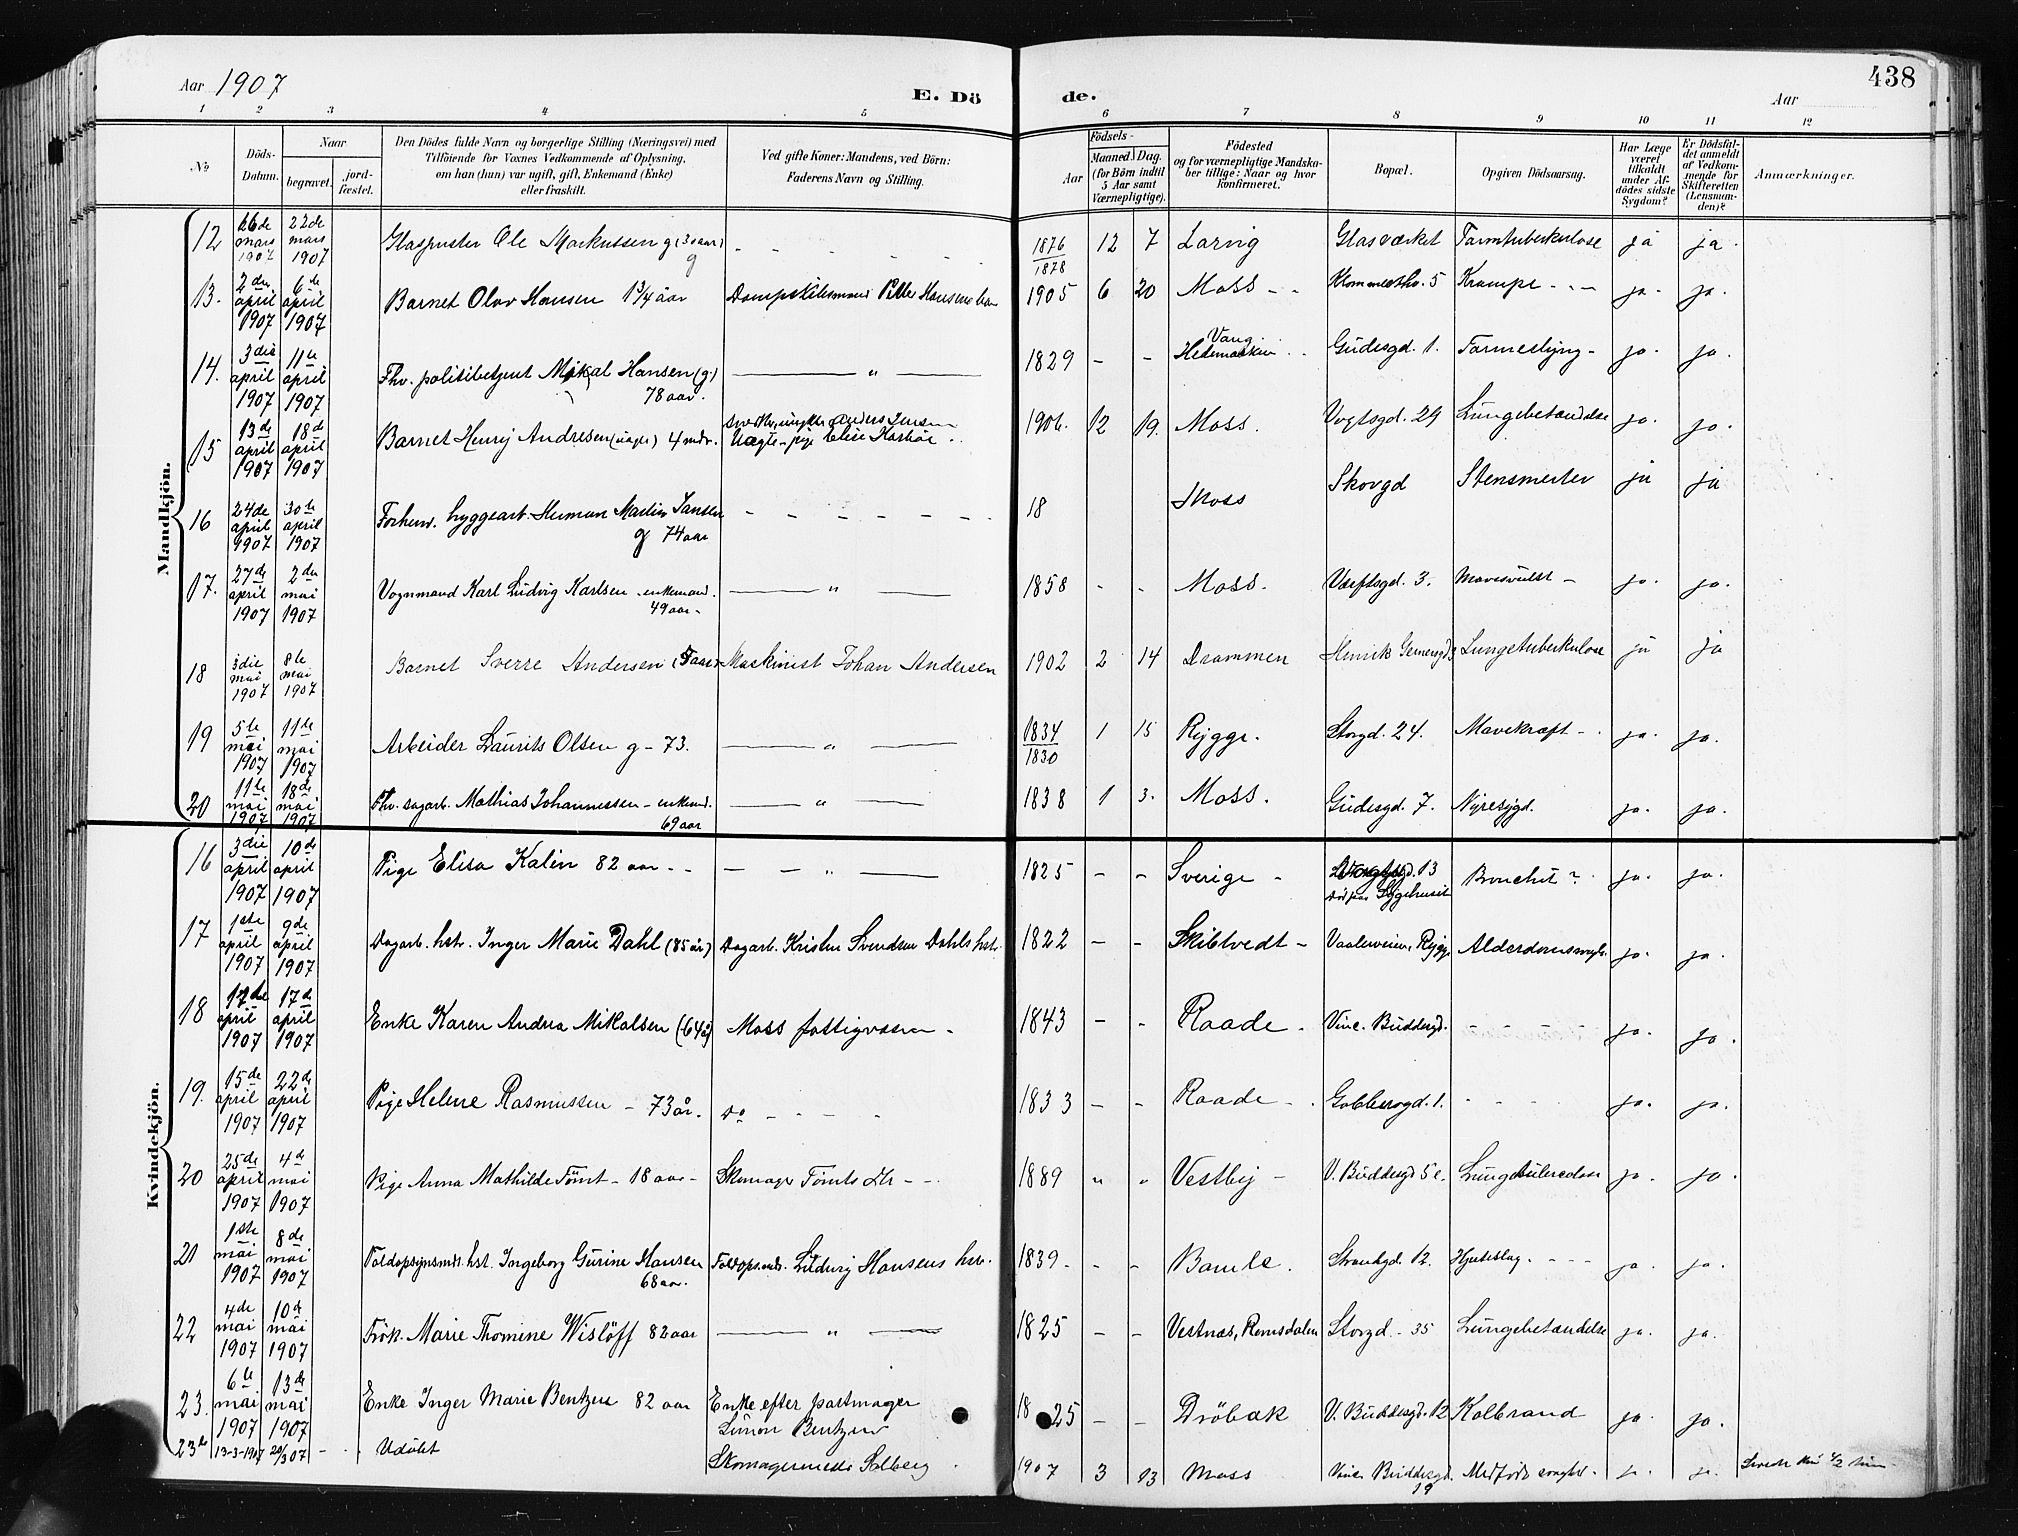 Aar 1907
E. Dö de.
Aar
438
1 2 3 4 5 6 7 8 9 10 11 12
No
Döds-Datum.
Naar
begravet.
jord-fæstet.
Den Dödes fulde Navn og borgerlige Stilling (Næringsvei) med
Tilföiende for Voxnes Vedkommende af Oplysning,
om han (hun) var ugift, gift, Enkemand (Enke)
eller fraskilt.
Ved gifte Koner: Mandens, ved Börn:
Faderens Navn og Stilling.
Födsels-
Aar
Maaned. Dag.
(for Börn indtil
5 Aar samt
Værnepligtige).
Födested
og for værnepligtige Mandska-
ber tillige: Naar og hvor
konfirmeret.
Bopæl.
Opgiven Dödsaarsag.
Har Læge
været
tilkaldt
under Af-
dödes sidste
Sygdom?
Er Dödsfal-
det anmeldt
af Vedkom-
mende for
Skifteretten
(Lensman-
den)?
Anmærkninger.
Mandkjön.
12 16de mars 1907 22de mars 1907 Glaspuster Ole Markussen g (30 aar) g 1876/1878 12 7 Larvig Glasværket Tarmtuberkulose ja ja
13. 2den april 1907 6te april 1907 Barnet Olav Hansen 1 3/4 aar 1905 6 20 Moss 5 Krampe ja. ja.
14. 3die april 1907 11te april 1907 Fhv. politibetjent Mikal Hansen (g) 78 aar. — " — 1829 - - Vang Hedemarken Gudesgd. 1. Tarmeslyng - ja. ja.
15 13de april 1907 18de april 1907 Barnet Henrij Andresen (uægte) 4 mdr. 1906. 12 19. Moss. Vogtsgd. 29 Lungebetændelse ja. ja.
16 24de april 1907 30te april 1907 Forhenv. byggearb. Herman Martin Jansen g 74 aar 18 Moss Skovgd Stensmerter ja ja
17. 27de april 1907 2den mai 1907 Vognmand Karl Ludvig Karlsen enkemand. 49 aar - — " — 1858 - - Moss. Værftsgd. 3. Mavesvulst - ja. ja.
18 3die mai 1907 8te mai 1907 Barnet Sverre Andersen (5 aar) Maskinist Johan Andersen 1902 2 14 Drammen Henrik Lungetuberkulose ja ja
19 5te mai 1907 11te mai 1907 Arbeider Laurits Olsen g - 73. — " — 1834/1830 1 15 Rygge. Storgd. 24. Mavekræft - ja. ja.
20 11te mai 1907 18de mai 1907 Fhv. sagarb. Mathias Johannessen - enkemd. 69 aar — " — 1838 1 3. Moss. Gudesgd. 7. Nyresygd. ja. ja.
Kvindekjön.
16 3die april 1907 10de april 1907 Pige Elisa Kalin 82 aar - - — " — 1825 - - Sverige - 13 Sygehuset Bronchit ? ja. ja.
17 1ste april 1907 9de april 1907 Dagarb. hstr. Inger Marie Dahl (85 år) Dagarb. Kristen Svendsen Dahls hstr. 1822 - - Skibtvedt - Vaalerveien, Rygge ja. ja.
18 17de april 1907 Enke Karen Andrea Mikalsen (64 år) Moss fattigvæsen - 1843 - - Raade - Vinc. Buddesgd. ja. ja.
19. 15de april 1907 22de april 1907 Pige Helene Rasmussen - 73 år. do 1833 - - Raade - ja. ja.
20 25de april 1907 4de mai 1907 Pige Anna Mathilde Tömt - 18 aar - Skomager Tömts dtr - - 1889 " " Vestby - V. Buddesgd 5 c. ja. ja.
21 1ste mai 1907 8de mai 1907 Toldopsynsmds. hst. Ingeborg Gurine Hansen 68 aar. Toldops.mds. Ludvig Hansens hstr. 1839 - - - Bamle. Strandgd. 12. Hjerteslag. - - - ja. ja.
22 4de mai 1907 10de mai 1907 Frök. Marie Thomine Wislöff 82 aar — " — 1825 - - Vestnæs, Romsdalen Storgd. - 35 Lungebetændelse ja. ja.
23. 6te mai 1907 13de mai 1907 Enke Inger Marie Bentzen 82 aar Enke efter Simon Bentzen 1825 - - Dröbak V. Buddesgd. 12 Kolbrand ja. ja.
23b 13-3-1907 20/3 07 - Udöbt Skomagersvend Solberg 1907 3 13 Moss Vinc. Buddesgd. 19 Medfödt ja. ja. 1/2